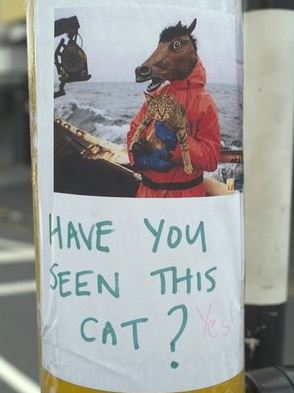 HAVE YOU
SEEN THIS
CAT? Yes